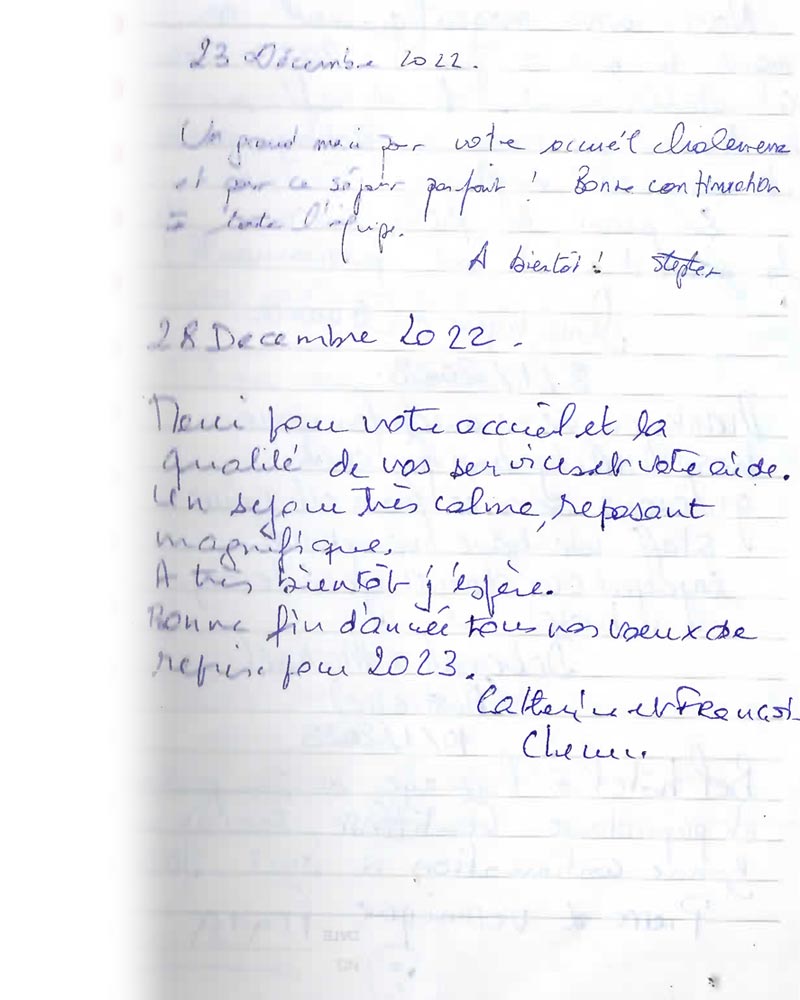 23 Décembre 2022.
Un grand merci pour votre accueil chaleureux
et pour ce séjour parfait ! Bonne continuation
à toute l'équipe.
A bientôt !
28 Decembre 2022.
Merci pour votre accuèl et la
qualité de vos services et votre aide.
Un sejour très calme, reposant
magnifique.
A très bientôt j'espère.
Bonne fin d'année tous nos voeux de
pour 2023.
Catherine et Francois